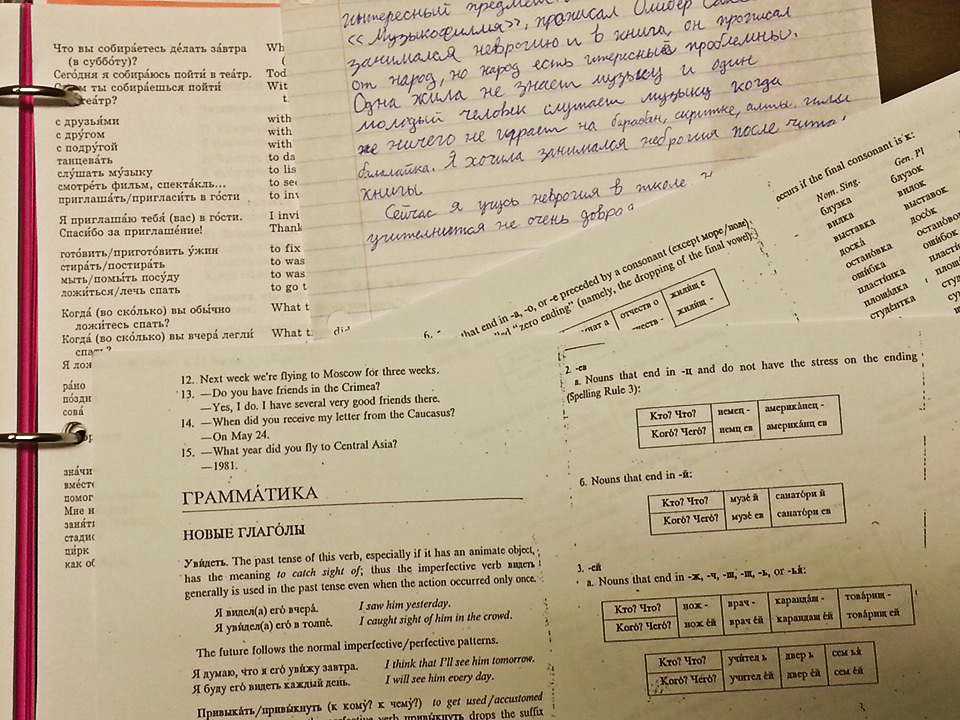 Что вы собира́етесь де́лать за́втра
(в суббо́ту)?
Сего́дня я собира́юсь пойти́ в теа́тр.
ты собира́ешься пойти́
теа́тр?
с друзья́ми
с дру́гом
с подру́гой
танцева́ть
слу́шать му́зыку
смотре́ть фильм, спекта́кль...
приглаша́ть/пригласи́ть в го́сти
Я приглаша́ю тебя́ (вас) в го́сти.
Спаси́бо за приглаше́ние!
гото́вить/пригото́вить у́жин
стира́ть/постира́ть
мыть/помы́ть посу́ду
ложи́ться/лечь спать
Когда́ (во ско́лько) вы обы́чно
ложи́тесь спать?
Когда́ (во ско́лько) вы вчера́ легли́
спать?
Я лож
ра́но
по́здн
сова́
зна́чи
вме́сто
помог
Мне н
заня́ти
стадио
ци́рк
как об
Wh
(
Tod
Wit
t.
with
with
with
to da
to lis
to see
to inv
I invi
Thank
to fix
to was
to was
to go t
What t
What t
did
интересный предмет.
«Музыкофилия», прописал Оливер Сакс
занимался неврогию и в книга, он прописал
от народ, но народ есть итересный проблемны.
Одна жила не знает музыку и один
молодый человек слушает музыку когда
же ничего не играет на барабан, скрипке, альты, или
балалайка. Я хочила занимался неврогия после чита
книгы
Сейчас я учусь неврогия в школе
учительница не очень добра
occurs if the final consonant is к:
Nom. Sing. Gen. Pl
блу́зка блу́зок
ви́лка ви́лок
вы́ставка вы́ставок
доска́ досо́к
остано́вка остано́вок
оши́бка оши́бок
пласти́нка пласти́н
площа́дка площа́
студе́нтка студе́
б. that end in -а, -о, or -е preceded by a consonant (except мо́ре/по́ле)
"zero ending" (namely, the dropping of the final vowel):
о́тчеств о жили́щ е
о́тчеств - жили́щ -
12. Next week we're flying to Moscow for three weeks.
13. —Do you have friends in the Crimea?
—Yes, I do. I have several very good friends there.
14. —When did you receive my letter from the Caucasus?
—On May 24.
15. —What year did you fly to Central Asia?
—1981.
ГРАММА́ТИКА
НОВЫЕ ГЛАГО́ЛЫ
Уви́деть. The past tense of this verb, especially if it has an animate object,
has the meaning to catch sight of; thus the imperfective verb ви́деть
generally is used in the past tense even when the action occurred only once.
Я ви́дел(а) его́ вчера́. I saw him yesterday.
Я уви́дел(а) его́ в толпе́. I caught sight of him in the crowd.
The future follows the normal imperfective/perfective patterns.
Я ду́маю, что я его́ уви́жу за́втра. I think that I'll see him tomorrow.
Я бу́ду его́ ви́деть ка́ждый день. I will see him every day.
Привыка́ть/привы́кнуть (к кому́? к чему́?) to get used/accustomed
perfective verb привы́кнуть drops the suffix
2. -ев
а. Nouns that end in -ц and do not have the stress on the ending
(Spelling Rule 3):
Кто? Что? не́мец - америка́нец -
Кого́? Чего́? не́мц ев америка́нц ев
б. Nouns that end in -й:
Кто? Что? музе́ й санато́ри й
Кого́? Чего́? музе́ ев санато́ри ев
3. -ей
а. Nouns that end in -ж, -ч, -ш, -щ, -ь, or -ья́:
Кто? Что? нож - врач - каранда́ш - това́рищ -
Кого́? Чего́? нож е́й врач е́й карандаш е́й това́рищ ей
Кто? Что? учи́тел ь двер ь сем ья́
Кого́? Чего́? учител е́й двер е́й сем е́й